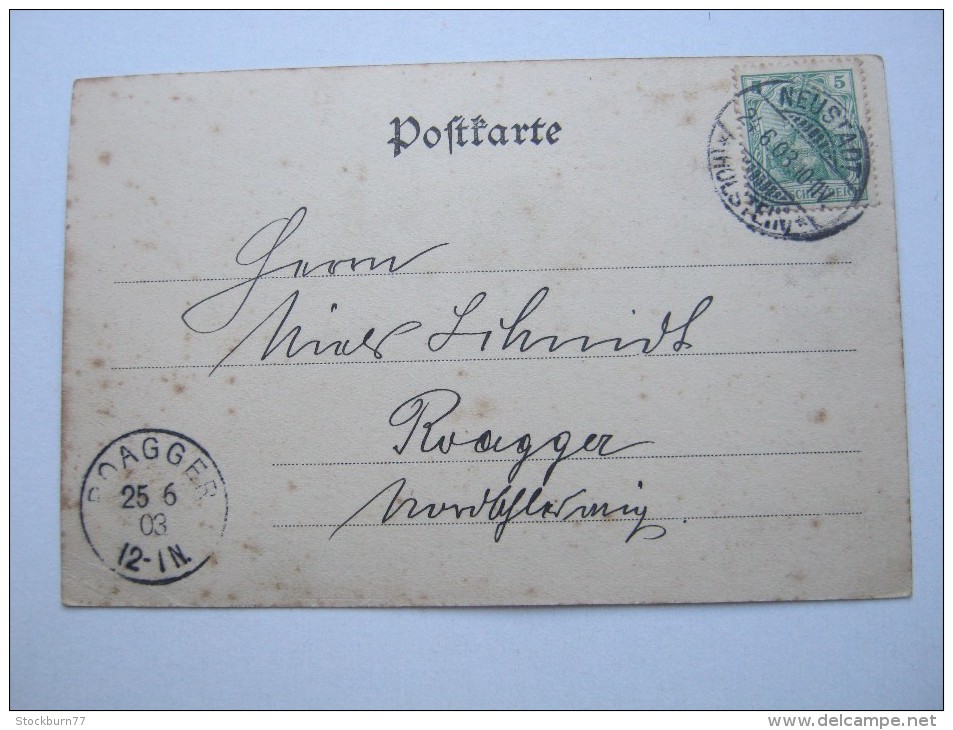 Postkarte
5
NEUSTADT
6.03.10-11V.
* (HOLSTEIN) *
Herrn
Niels Schmidt
Roagger
Nordschleswig.
ROAGGER
25 6
03
12-1N.
Stockburn77
www.delcampe.net